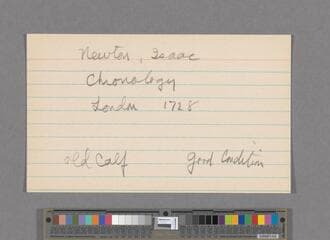 Newton, Isaac
Chronology
London 1728
old Calf Good Condition